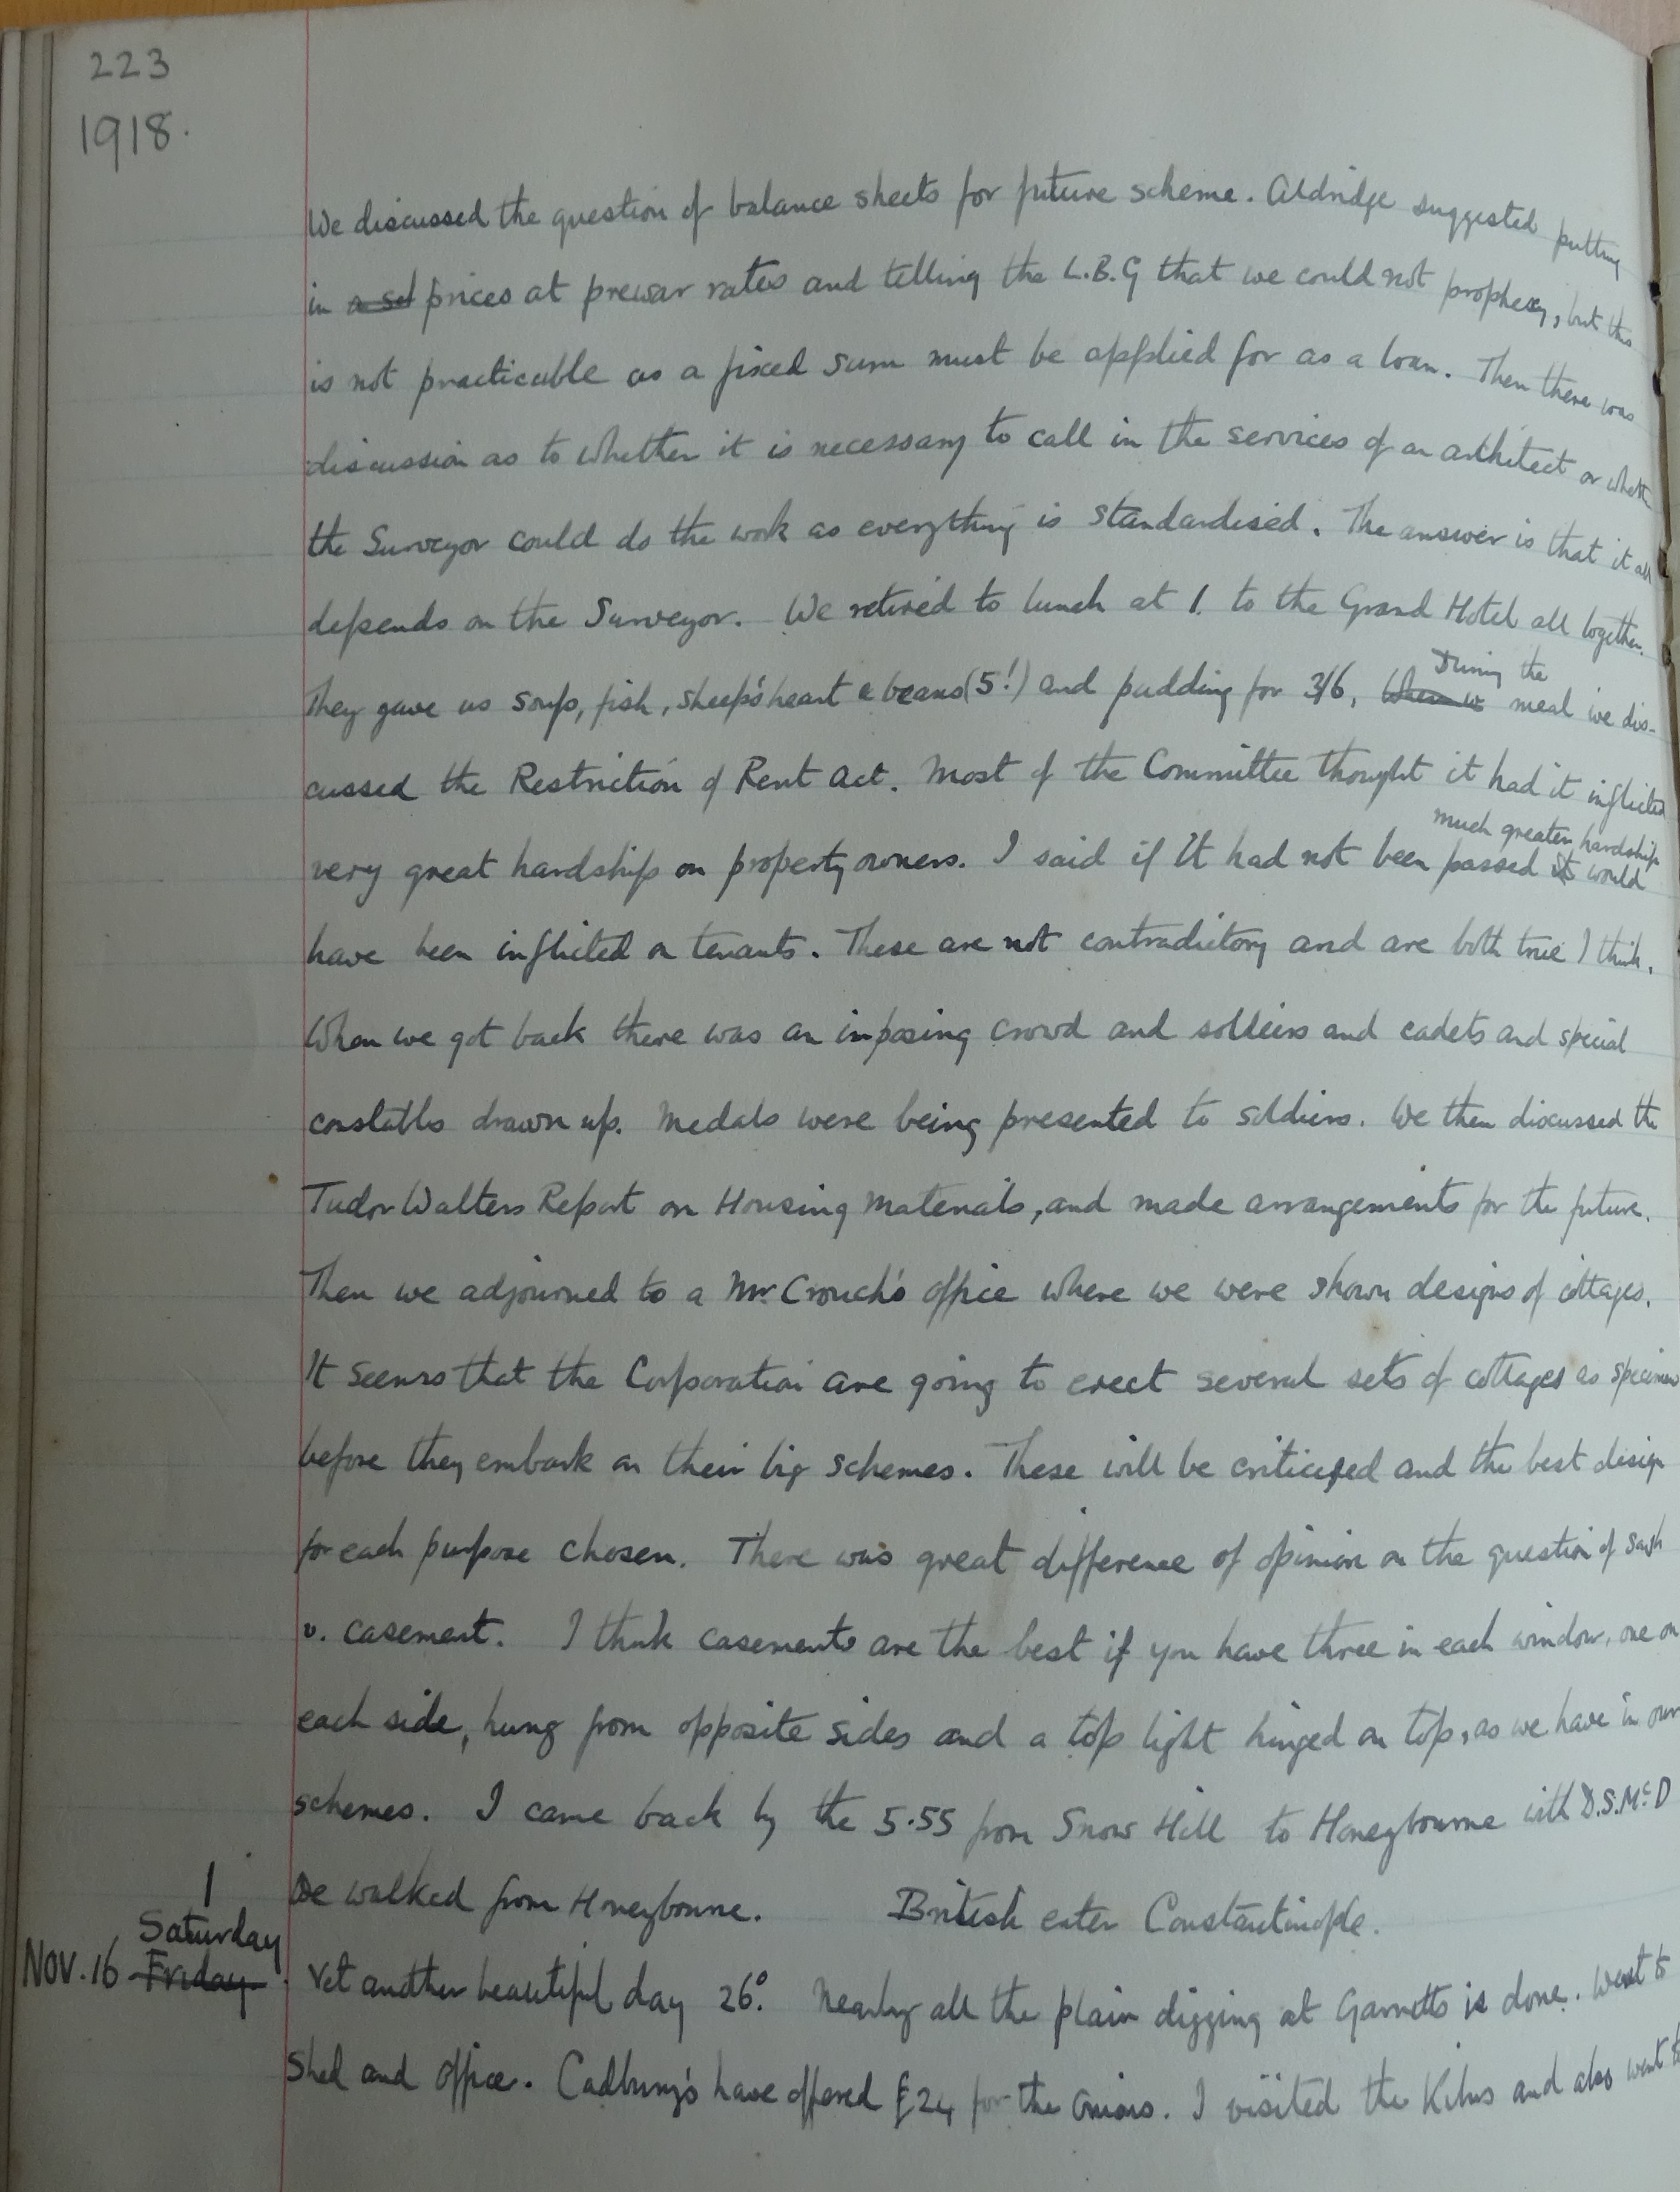 223
1918.
We discussed the question of balance sheets for future scheme. Aldridge suggested putting
in a set prices at prewar rates and telling the L.B.G that we could not prophesy, but this
is not practicable as a fixed sum must be applied for as a loan. Then there was
discussion as to whether it is necessary to call in the services of an architect or whether
the Surveyor could do the work as everything is standardised. The answer is that it all
depends on the Surveyor. We retired to lunch at 1. to the Grand Hotel all together.
They gave us soup, fish, sheep's heart & beans (5!) and pudding for 3/6, When w During the meal we dis-
cussed the Restriction of Rent Act. Most of the Committee thought it had it inflicted
very great hardship on property owners. I said if it had not been passed it much greater hardship would
have been inflicted on tenants. These are not contradictory and are both true I think.
When we got back there was an imposing crowd and soldiers and cadets and special
constables drawn up. Medals were being presented to soldiers. We then discussed the
Tudor Walters Report on Housing Materials, and made arrangements for the future.
Then we adjourned to a Mr. Crouch's office where we were shown designs of cottages.
It seems that the Corporation are going to erect several sets of cottages as specimens
before they embark on their big schemes. These will be criticised and the best design
for each purpose chosen. There was great difference of opinion on the question of sash
v. casement. I think casements are the best if you have three in each window, one on
each side, hung from opposite sides and a top light hinged on top, as we have in our
schemes. I came back by the 5.55 from Snow Hill to Honeybourne with D.S.McD
We walked from Honeybourne. British enter Constantinople.
1
NOV. 16 Friday Saturday Yet another beautiful day 26°. Nearly all the plain digging at Garretts is done. Went to
Shed and office. Cadbury's have offered £24 for the onions. I visited the Kilns and also went to